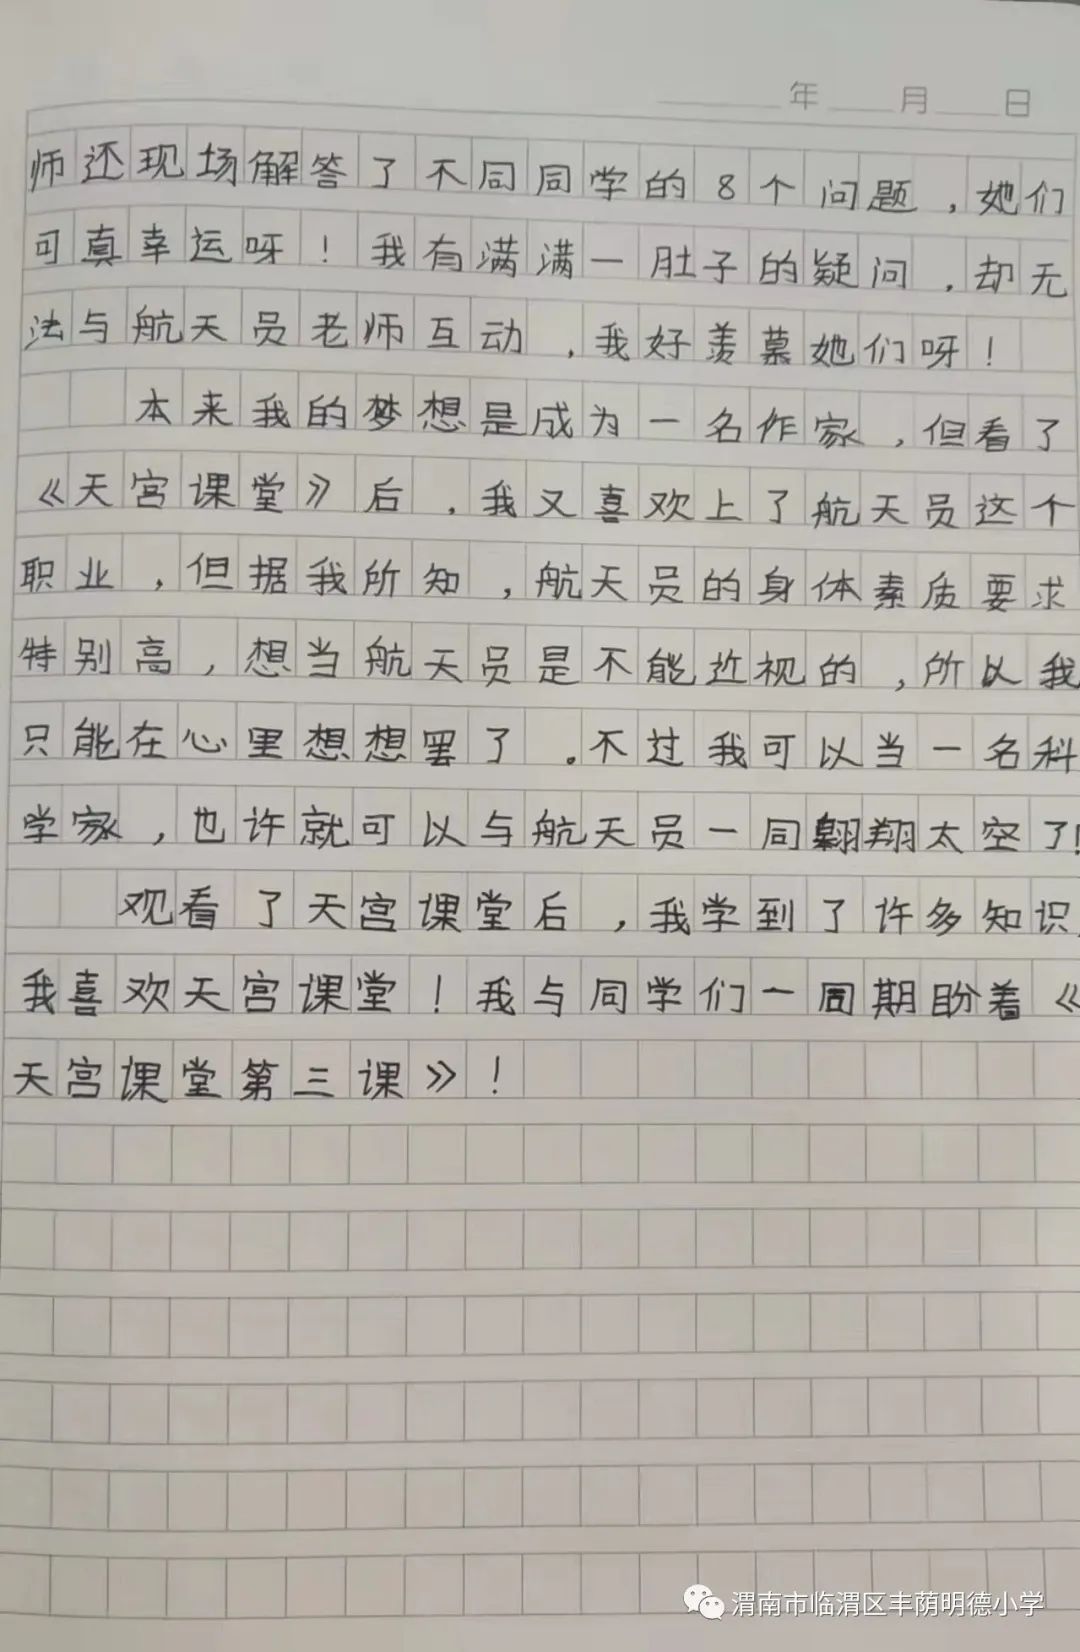 年 月 日
师还现场解答了不同同学的8个问题，她们
可真幸运呀！我有满满一肚子的疑问，却无
法与航天员老师互动，我好羡慕她们呀！
本来我的梦想是成为一名作家，但看了
《天宫课堂》后，我又喜欢上了航天员这个
职业，但据我所知，航天员的身体素质要求
特别高，想当航天员是不能近视的，所以我
只能在心里想想罢了。不过我可以当一名科
学家，也许就可以与航天员一同翱翔太空了！
观看了天宫课堂后，我学到了许多知识，
我喜欢天宫课堂！我与同学们一同期盼着《
天宫课堂第三课》！
渭南市临渭区丰荫明德小学